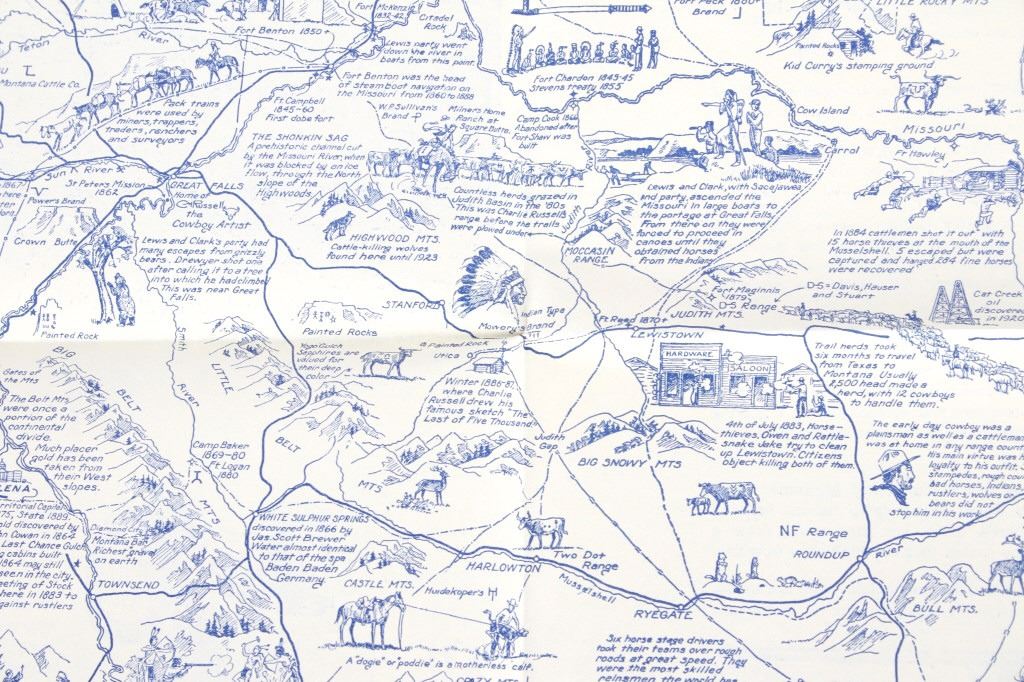 Fort McKenzie
1832-42
Citadel
Rock
Fort Peck 1860+
Brand
LITTLE ROCKY MTS
Teton
River
Fort Benton 1850+
Lewis party went
down the river in
boats from this point.
Painted Rocks
Kid Curry's stamping ground
Montana Cattle Co.
Fort Benton was the head
of steamboat navigation on
the Missouri from 1860 to 1888
Fort Chardon 1845-45
Stevens treaty 1855
Pack trains
were used by
miners, trappers,
traders, ranchers
and surveyors
Ft. Campbell
1845-60
First dobe fort
W.P. Sullivan's
Brand
Milner's Home
Ranch at
Square Butte
Camp Cook 1866
Abandoned after
Fort Shaw was
built
Cow Island
MISSOURI
THE SHONKIN SAG
A prehistoric channel cut
by the Missouri River, when
it was blocked by an ice
flow, through the North
slope of the
Highwoods
Carrol
Ft Hawley
Sun River
St Peters Mission
1862
GREAT FALLS
Home of
C.M. Russell
the
Cowboy Artist
Powers Brand
Crown Butte
Countless herds grazed in
Judith Basin in the '80s
This was Charlie Russell's
range before the trails
were plowed under
Judith
Lewis and Clark, with Sacajawea
and party, ascended the
Missouri in large boats to
the portage at Great Falls.
From there on they were
forced to proceed in
canoes until they
obtained horses
from the Indians
HIGHWOOD MTS.
Cattle-killing wolves
found here until 1923
MOCCASIN
RANGE
In 1884 cattlemen shot it out with
15 horse thieves at the mouth of the
Musselshell. 5 escaped but were
captured and hanged. 284 fine horses
were recovered
Lewis and Clark's party had
many escapes from grizzly
bears. Drewyer shot one
after calling it to a tree
into which he had climbed
This was near Great
Falls.
Fort Maginnis
1879
D-S Range
D-S = Davis, Hauser
and Stuart
JUDITH MTS.
Cat Creek
oil
discovered
in 1920
STANFORD
Indian Type
Mowery's Brand
Ft Reed 1870+
LEWISTOWN
Painted Rock
Painted Rocks
Painted Rock
Utica
Yogo Gulch
Sapphires are
valued for
their deep
color
HARDWARE
SALOON
Trail herds took
six months to travel
from Texas to
Montana Usually
2,500 head made a
herd, with 12 cowboys
to handle them.
BIG
BELT
MTS
Smith
River
LITTLE
BELT
MTS
Gates of
the Mts
The Belt Mts
were once a
portion of the
continental
divide.
Much placer
gold has been
taken from
their West
slopes.
Winter 1886-87,
where Charlie
Russell drew his
famous sketch "The
Last of Five Thousand"
Judith
Gap
BIG SNOWY MTS
4th of July 1883, Horse-
thieves, Owen and Rattle-
snake Jake try to clean
up Lewistown. Citizens
object killing both of them.
The early day cowboy was a
plainsman as well as a cattleman
was at home in any range country
His main virtue was his
loyalty to his outfit.
stampedes, rough
bad horses, Indians,
rustlers, wolves or
bears did not
stop him in his work
Camp Baker
1869-80
Ft Logan
1880
Diamond City
Montana Bar
Richest gravel
on earth
WHITE SULPHUR SPRINGS
discovered in 1866 by
Jas. Scott Brewer
Water almost identical
to that of the spa
Baden Baden
Germany
CASTLE MTS.
HARLOWTON
Two Dot
Range
Musselshell
NF Range
ROUNDUP
River
TOWNSEND
Hudekoper's
RYEGATE
BULL MTS.
A "dogie" or "poddie" is a motherless calf.
CRAZY MTS
Six horse stage drivers
took their teams over rough
roads at great speed. They
were the most skilled
reinsmen the world has